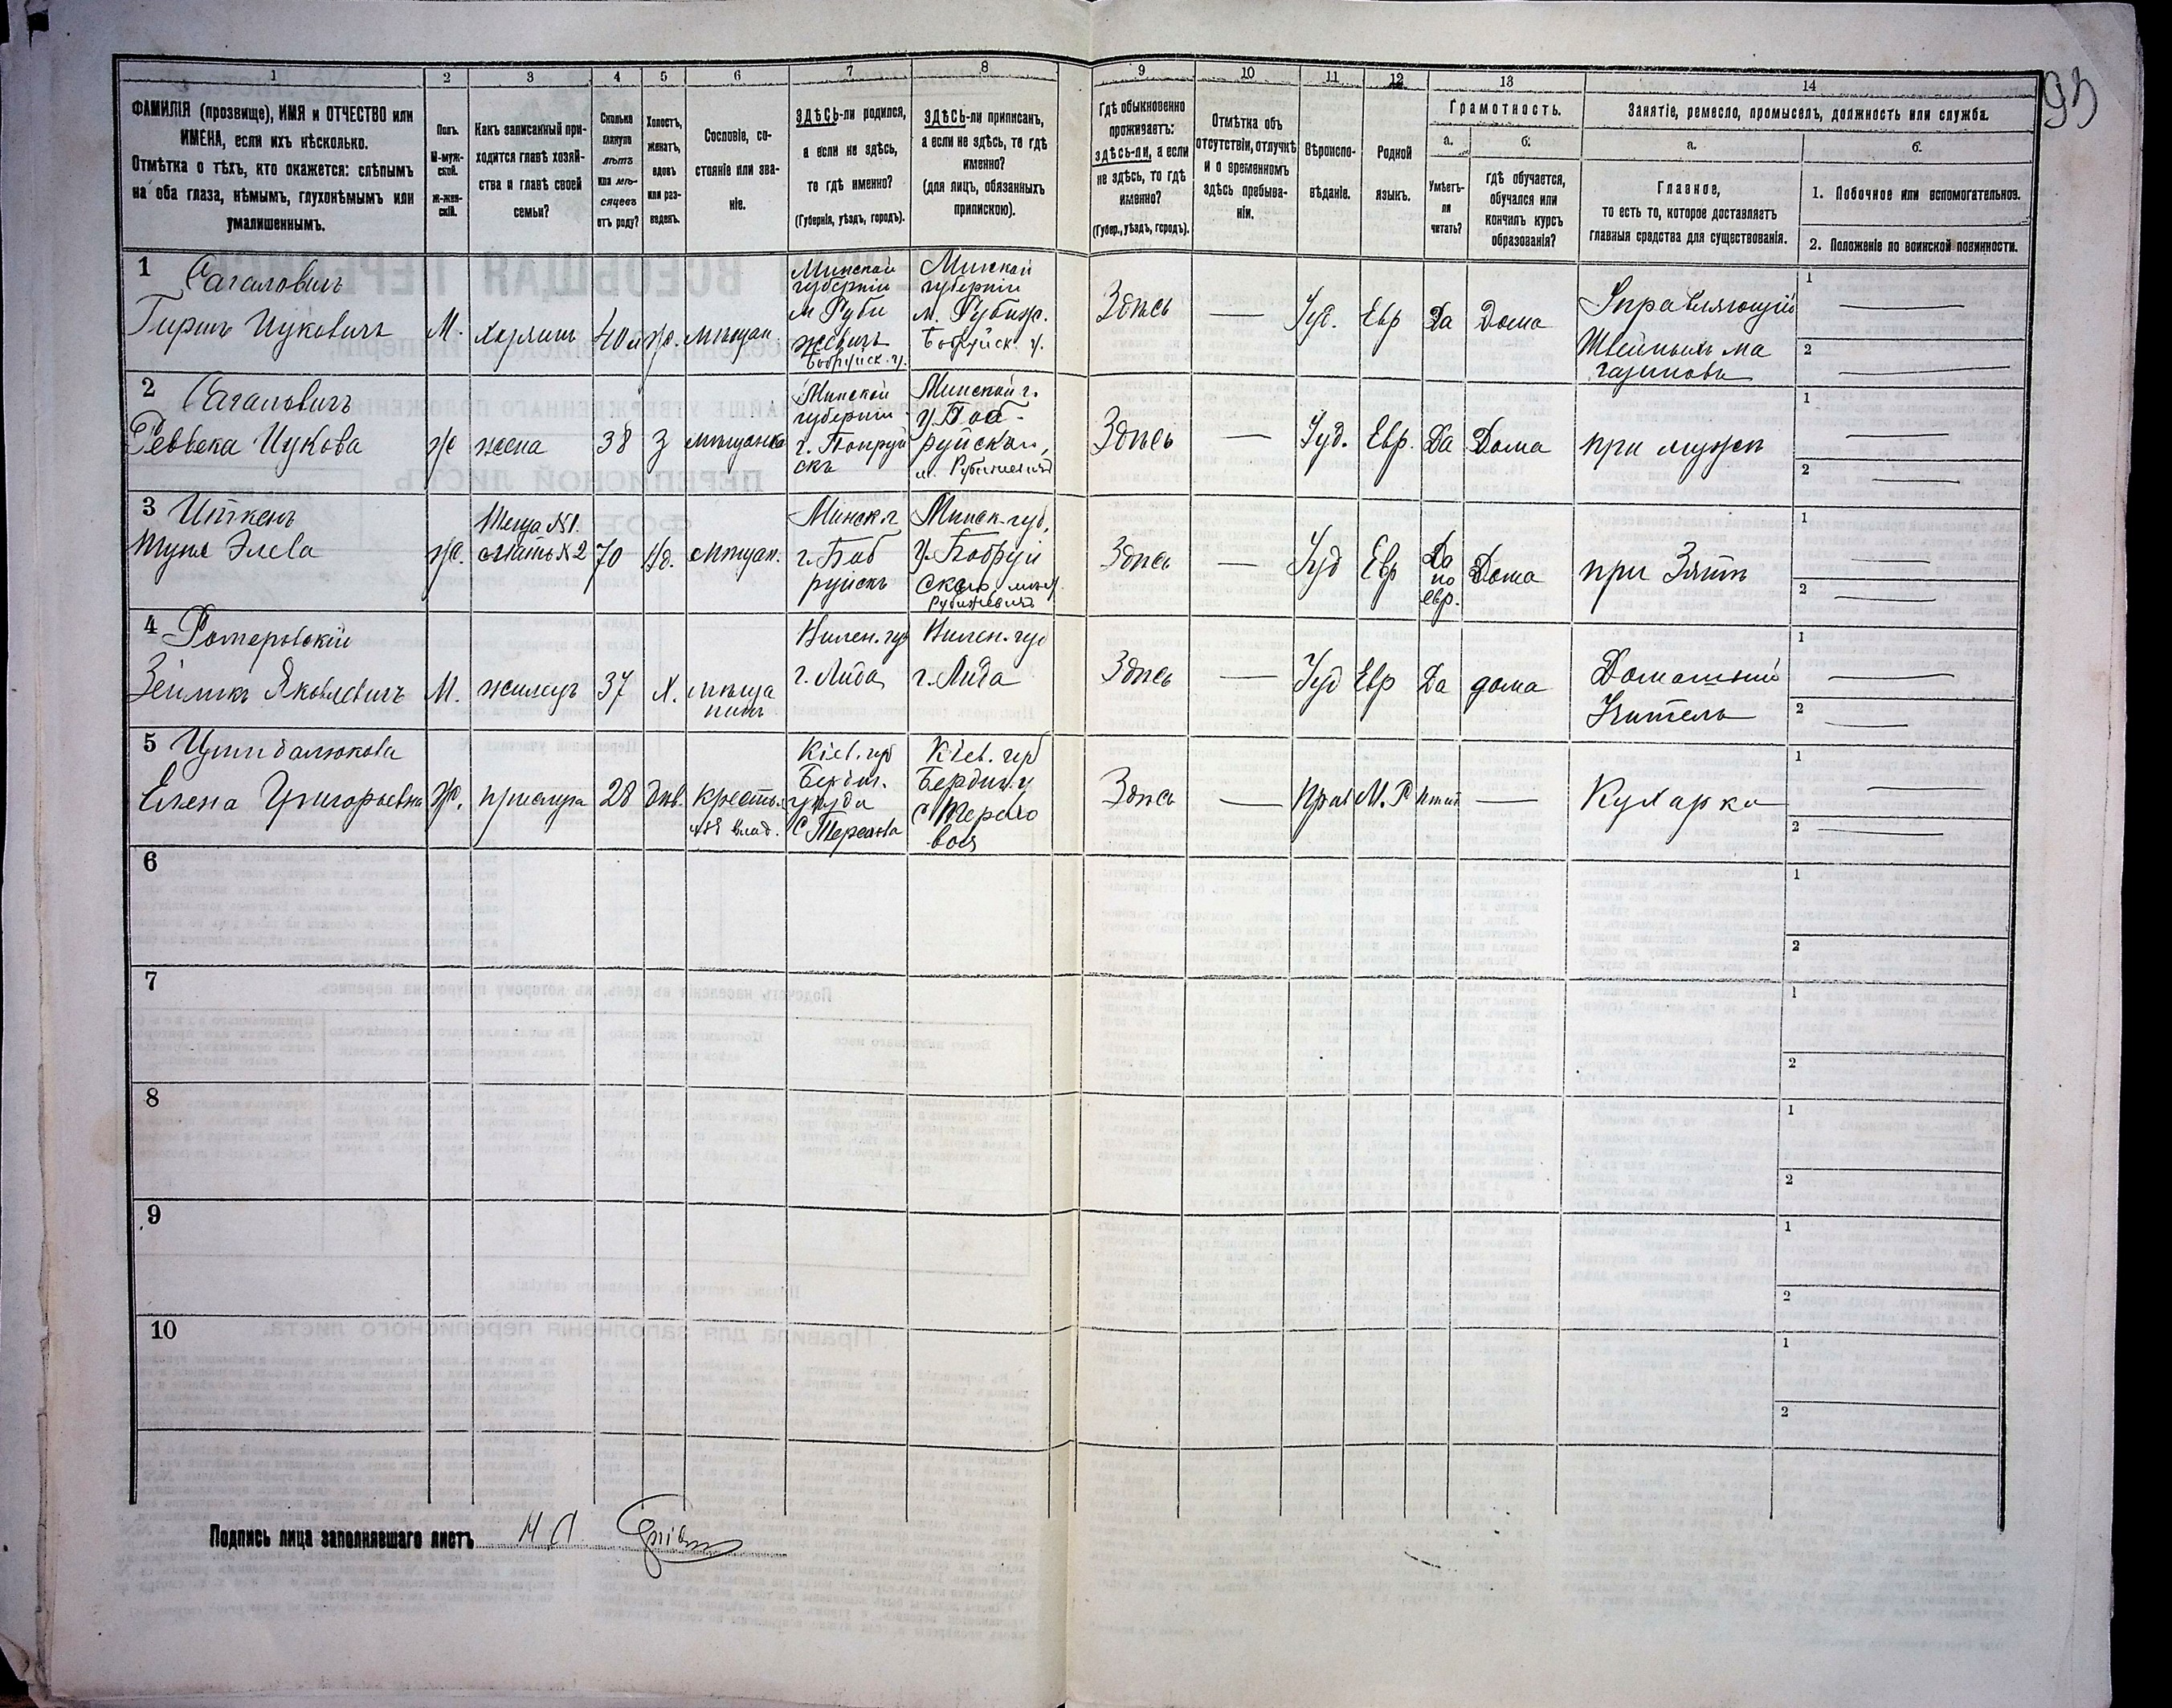 1 2 3 4 5 6 7 8 9 10 11 12 13 14
93
ФАМИЛІЯ (прозвище), ИМЯ и ОТЧЕСТВО или
ИМЕНА, если ихъ нѣсколько.
Отмѣтка о тѣхъ, кто окажется: слѣпымъ
на оба глаза, нѣмымъ, глухонѣмымъ или
умалишеннымъ.
Полъ.
М-муж-
ской.
ж-жен-
скій.
Какъ записанный при-
ходится главѣ хозяй-
ства и главѣ своей
семьи?
Сколько
минуло
лѣтъ
или мѣ-
сяцевъ
отъ роду?
Холостъ,
женатъ,
вдовъ
или раз-
веденъ.
Сословіе, со-
стояніе или зва-
ніе.
ЗДѢСЬ-ли родился,
а если не здѣсь,
то гдѣ именно?
(Губернія, уѣздъ, городъ).
ЗДѢСЬ-ли приписанъ,
а если не здѣсь, то гдѣ
именно?
(для лицъ, обязанныхъ
припискою).
Гдѣ обыкновенно
проживаетъ:
здѣсь-ли, а если
не здѣсь, то гдѣ
именно?
(Губер., уѣздъ, городъ).
Отмѣтка объ
отсутствіи, отлучкѣ
и о временномъ
здѣсь пребыва-
ніи.
Вѣроиспо-
вѣданіе.
Родной
языкъ.
Грамотность.
а.
Умѣетъ-
ли
читать?
б.
гдѣ обучается,
обучался или
кончилъ курсъ
образованія?
Занятіе, ремесло, промыселъ, должность или служба.
а.
Главное,
то есть то, которое доставляетъ
главныя средства для существованія.
б.
1. Побочное или вспомогательное.
2. Положеніе по воинской повинности.
1
Сагаловичъ
Гиршъ Ицковичъ
М.
Хозяинъ
40
мѣщан.
Минской
губерніи
м Руби
жевичъ
Бобруйск. у.
Минской
губерніи
м. Рубиж.
Бобруйск. у.
Здѣсь
Іуд.
Евр
Да
Дома
Управляющій
Швейныхъ ма
газиновъ
1
2
2
Сагаловичъ
Реввека Ицкова
ж
жена
38
З
мѣщанка
Минской
губерніи
г. Бобруй
скъ
Минской г.
у. Боб-
руйскаго,
м. Рубижевичъ
Здѣсь
Іуд.
Евр.
Да
Дома
при мужѣ
1
2
3
Элева
ж.
Теща №1.
мать №2
70
Вд.
мѣщан.
Минск. г
г. Боб
руйскъ
Минск. губ.
у. Бобруй
скаго
Рубижевичъ
Здѣсь
Іуд
Евр
Да
по
евр.
Дома
при Зятѣ
1
2
4
Яковлевичъ
М.
жилецъ
37
Х.
мѣща
нинъ
Вилен. губ
г. Лида
Вилен. губ
г. Лида
Здѣсь
Іуд
Евр
Да
дома
Домашній
Учитель
1
2
5
Цимбалюкова
Елена Григорьевна
ж.
прислуга
28
дѣв.
Крестья
Кіев. губ
Бердич.
уѣзда
Кіев. губ
Бердич. у
Здѣсь
Прав
М. Р
нѣтъ
Кухарка
1
2
6
1
2
7
1
2
8
1
2
9
1
2
10
1
2
Подпись лица заполнявшаго листъ